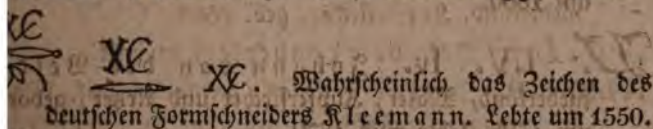 XE
XE XE. Wahrſcheinlich das Zeichen des
deutſchen Formſchneiders Kleemann. Lebte um 1550.